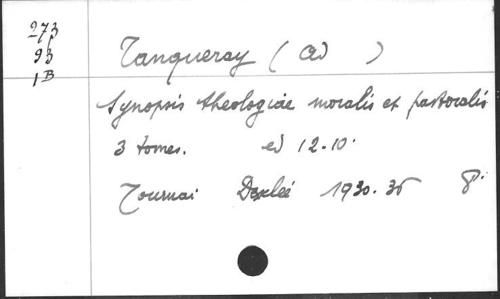 273
93
1B
Tanqueray ( Ad )
Synopsis theologiae moralis et pastoralis
3 tomes. ed 12.10.
Tournai Desclée 1930.36 8°